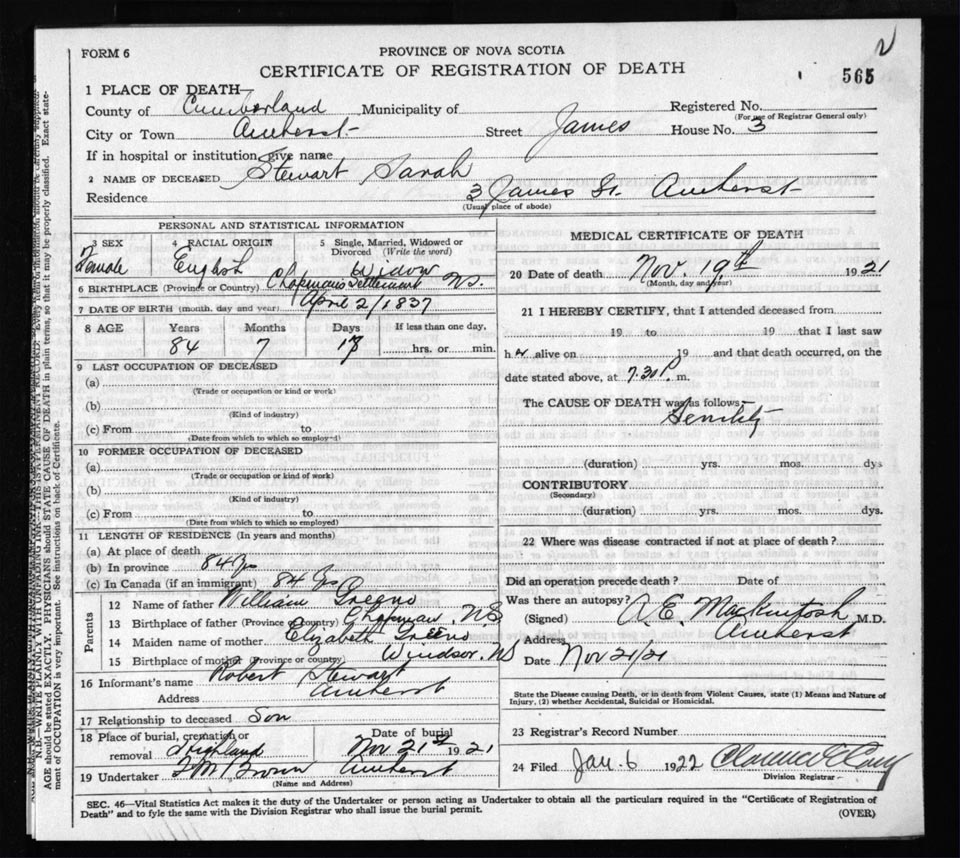 2
FORM 6
PROVINCE OF NOVA SCOTIA
CERTIFICATE OF REGISTRATION OF DEATH
565
1 PLACE OF DEATH
County of Cumberland Municipality of Registered No.
(For use of Registrar General only)
City or Town Amherst Street James House No. 3
If in hospital or institution, give name
2 NAME OF DECEASED Stewart Sarah
Residence 3 James St. Amherst
(Usual place of abode)
PERSONAL AND STATISTICAL INFORMATION
3 SEX 4 RACIAL ORIGIN 5 Single, Married, Widowed or Divorced (Write the word)
Female English Widow
6 BIRTHPLACE (Province or Country) Chapmans Settlement NS.
7 DATE OF BIRTH (month, day and year) April 2/1837
8 AGE Years Months Days If less than one day,
84 7 17 hrs. or min.
9 LAST OCCUPATION OF DECEASED
(a)
(Trade or occupation or kind or work)
(b)
(Kind of industry)
(c) From to
(Date from which to which so employ-d)
10 FORMER OCCUPATION OF DECEASED
(a)
(Trade or occupation or kind of work)
(b)
(Kind of industry)
(c) From to
(Date from which to which so employed)
11 LENGTH OF RESIDENCE (In years and months)
(a) At place of death
(b) In province 84 yrs
(c) In Canada (if an immigrant) 84 yrs
Parents
12 Name of father William Greeno
13 Birthplace of father (Province or Country) Chapman, NS
14 Maiden name of mother Elizabeth Greeno
15 Birthplace of mother (Province or country) Windsor, NS
16 Informant's name Robert Stewart
Address Amherst
17 Relationship to deceased Son
18 Place of burial, cremation or removal Highland Date of burial Nov 21st 1921
19 Undertaker Brown Amherst
(Name and Address)
MEDICAL CERTIFICATE OF DEATH
20 Date of death Nov. 19th 1921
(Month, day and year)
21 I HEREBY CERTIFY, that I attended deceased from
19 to 19 that I last saw
h alive on 19 and that death occurred, on the
date stated above, at 7.30 P. m.
The CAUSE OF DEATH was as follows:
Senility
(duration) yrs. mos. dys
CONTRIBUTORY
(Secondary)
(duration) yrs. mos. dys.
22 Where was disease contracted if not at place of death?
Did an operation precede death? Date of
Was there an autopsy?
(Signed) A. E. Mackintosh M.D.
Address Amherst
Date Nov 21/21
State the Disease causing Death, or in death from Violent Causes, state (1) Means and Nature of
Injury, (2) whether Accidental, Suicidal or Homicidal.
23 Registrar's Record Number
24 Filed Jan. 6 1922
Division Registrar
SEC. 46—Vital Statistics Act makes it the duty of the Undertaker or person acting as Undertaker to obtain all the particulars required in the "Certificate of Registration of
Death" and to fyle the same with the Division Registrar who shall issue the burial permit.
(OVER)
N.B.—WRITE PLAINLY WITH UNFADING INK—THIS IS A PERMANENT RECORD.
AGE should be stated EXACTLY. PHYSICIANS should STATE CAUSE OF DEATH in plain terms, so that it may be properly classified. Exact state-
ment of OCCUPATION is very important. See instructions on back of Certificate.